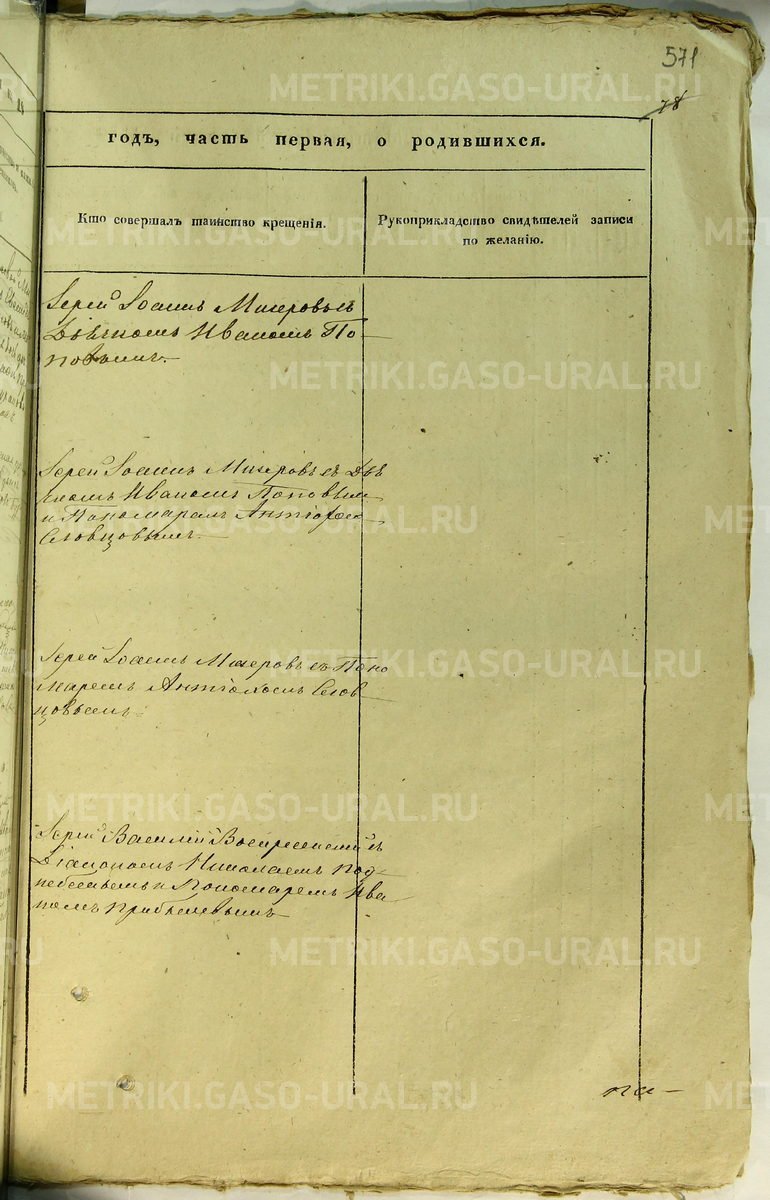 571
78
годъ, часть первая, о родившихся.
Кто совершалъ таинство крещенія.
Рукоприкладство свидѣтелей записи
по желанію.
Іерей Іоаннъ Мизеровъ съ
Дьячкомъ Иваномъ По
повымъ.
Іерей Іоаннъ Мизеровъ съ Дья
чкомъ Иваномъ Поповым
и Пономаремъ Антіохо
Словцовымъ.
Іерей Іоаннъ Мизеровъ съ Поно
маремъ Антіохомъ Слов
цовымъ.
Іерей Василій Воскресенскій съ
Діакономъ Николаемъ Под
и Пономаремъ Ива
номъ Прибылевымъ
METRIKI.GASO-URAL.RU